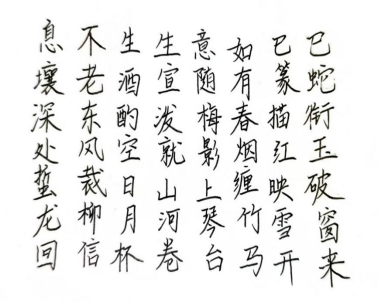 巳蛇衔玉破窗来
巳篆描红映雪开
如有春烟缠竹马
意随梅影上琴台
生宣泼就山河卷
生酒酌空日月杯
不老东风裁柳信
息壤深处蛰龙回